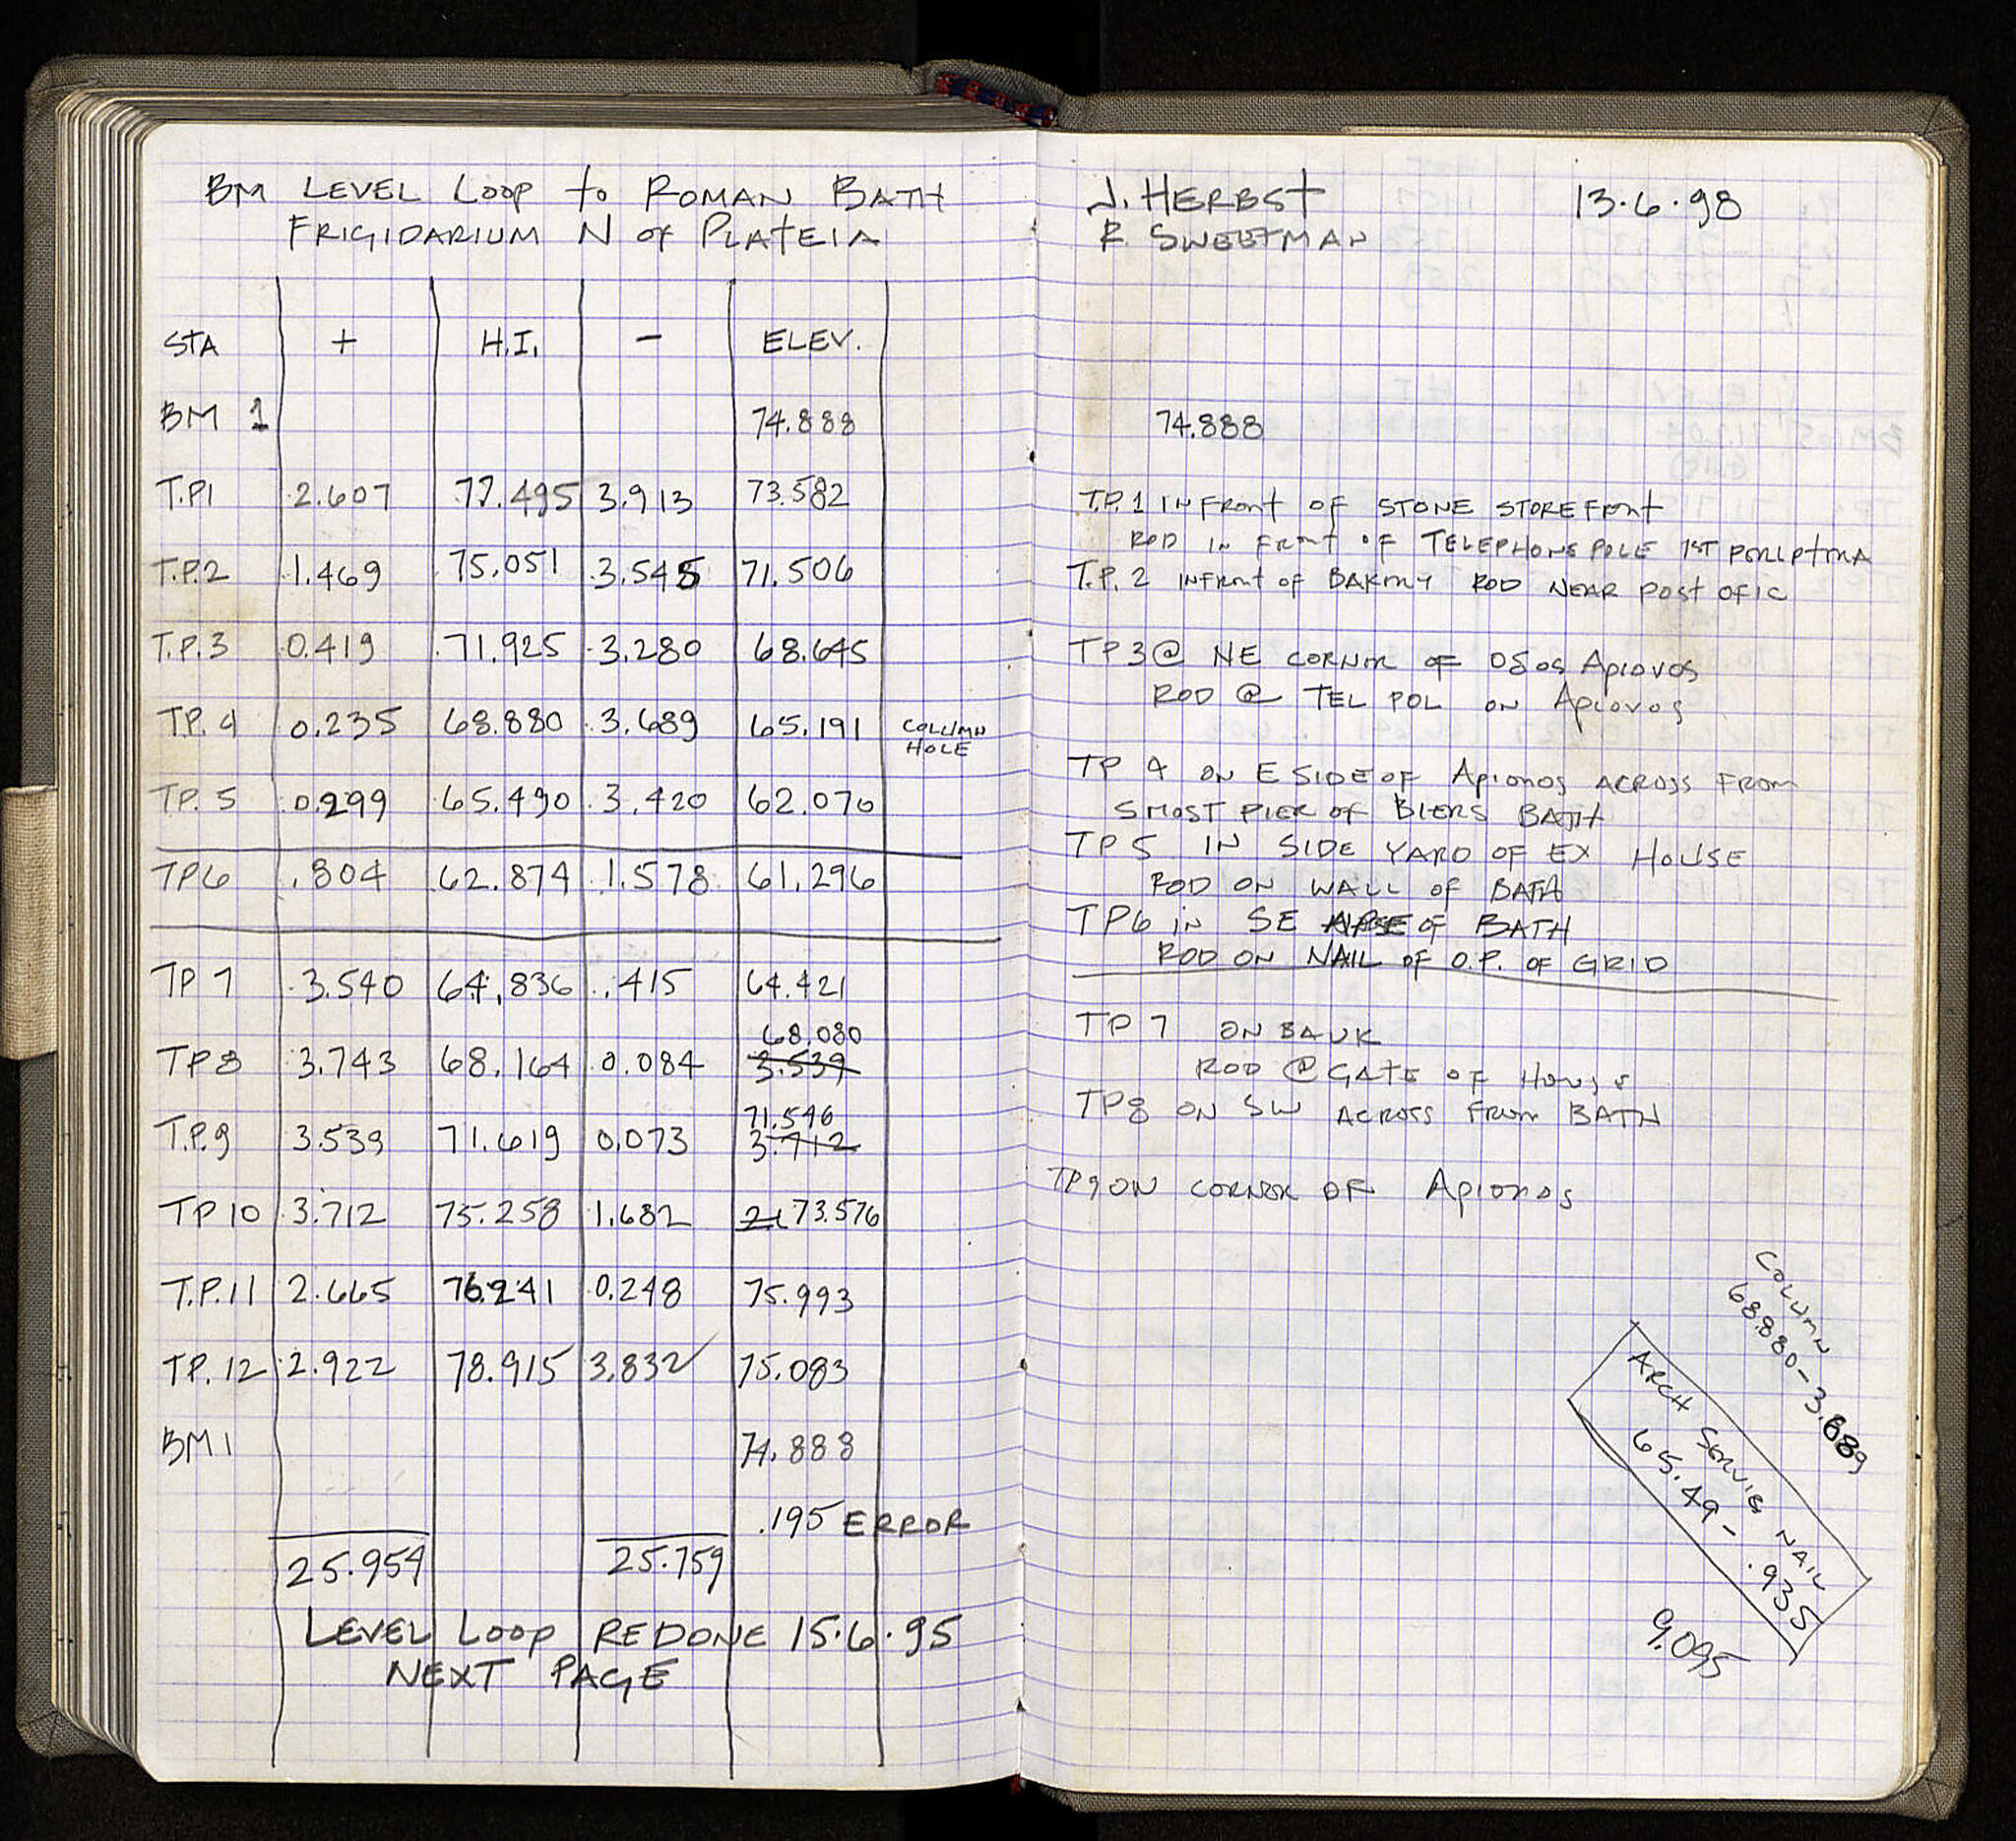 BM LEVEL LOOP to ROMAN BATH
FRIGIDARIUM N OF PLATEIA
STA + H.I. - ELEV.
BM 1 74.888
T.P1 2.607 77.495 3.913 73.582
T.P.2 1.469 75.051 3.545 71.506
T.P.3 0.419 71.925 3.280 68.645
TP. 4 0.235 68.880 3.689 65.191 COLUMN HOLE
TP. 5 0.299 65.490 3.420 62.070
TP6 .804 62.874 1.578 61.296
TP 7 3.540 64.836 .415 64.421
68.080
TP8 3.743 68.164 0.084 3.539
71.546
T.P.9 3.539 71.619 0.073 3.712
TP 10 3.712 75.258 1.682 73.576
T.P.11 2.665 76.241 0.248 75.993
TP. 12 2.922 78.915 3.832 75.083
BM1 74.888
.195 ERROR
25.954 25.759
LEVEL LOOP REDONE 15.6.95
NEXT PAGE
J. HERBST 13.6.98
R. SWEETMAN
74.888
T.P. 1 IN FRONT OF STONE STOREFRONT
ROD IN FRONT OF TELEPHONE POLE 1ST
T.P. 2 IN FRONT OF BAKERY ROD NEAR POST OFIC
TP 3 @ NE CORNER OF Οδος Αριονος
ROD @ TEL POL ON Αριονος
TP 4 ON E SIDE OF Apionos ACROSS FROM
SMOST PIER OF BIERS BATH
TP 5 IN SIDE YARD OF EX HOUSE
ROD ON WALL OF BATH
TP6 IN SE APSE OF BATH
ROD ON NAIL OF O.P. OF GRID
TP 7 ON BAUK
ROD @ GATE OF House
TP8 ON SW ACROSS FROM BATH
TP9 ON CORNER OF Apionos
COLUMN
68.880 - 3.889
ARCH SERVICE NAIL
65.49 - .935
9.095